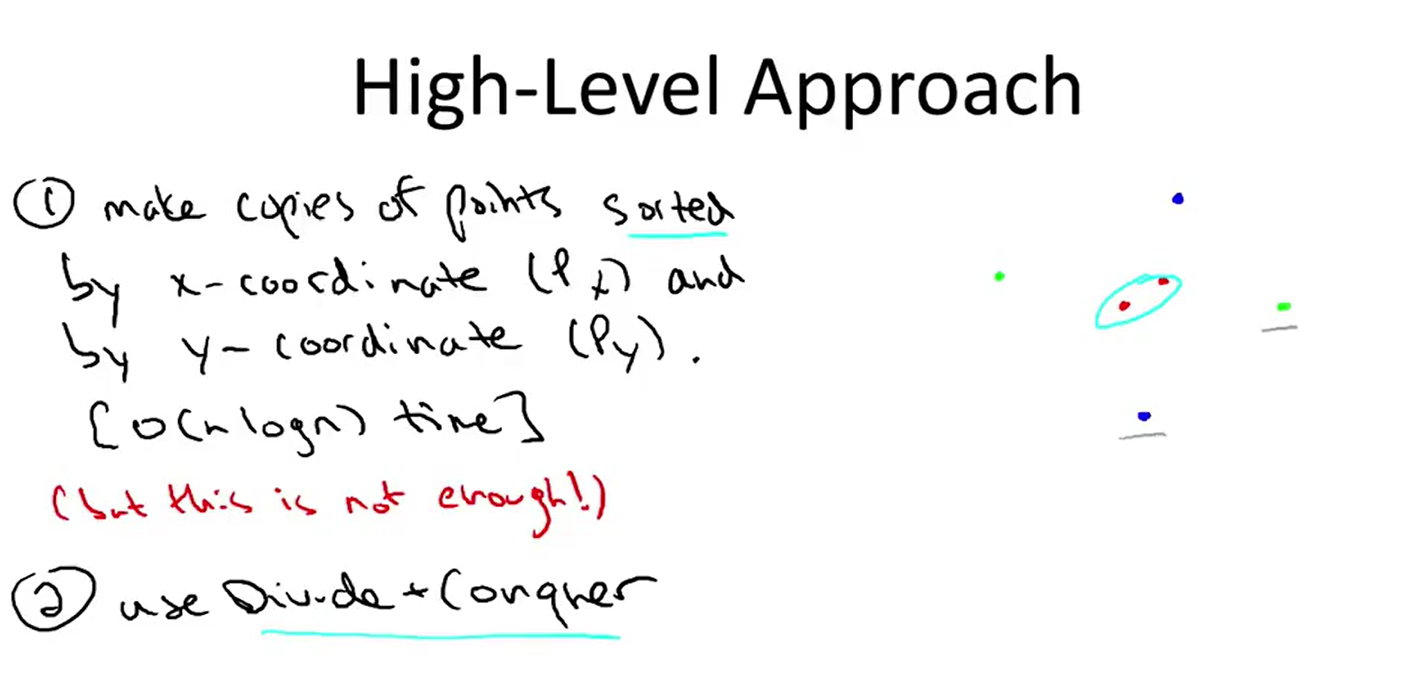 High-Level Approach
① make copies of points sorted
by x-coordinate (Px) and
by y-coordinate (Py).
[O(n log n) time]
(but this is not enough!)
② use Divide + Conquer